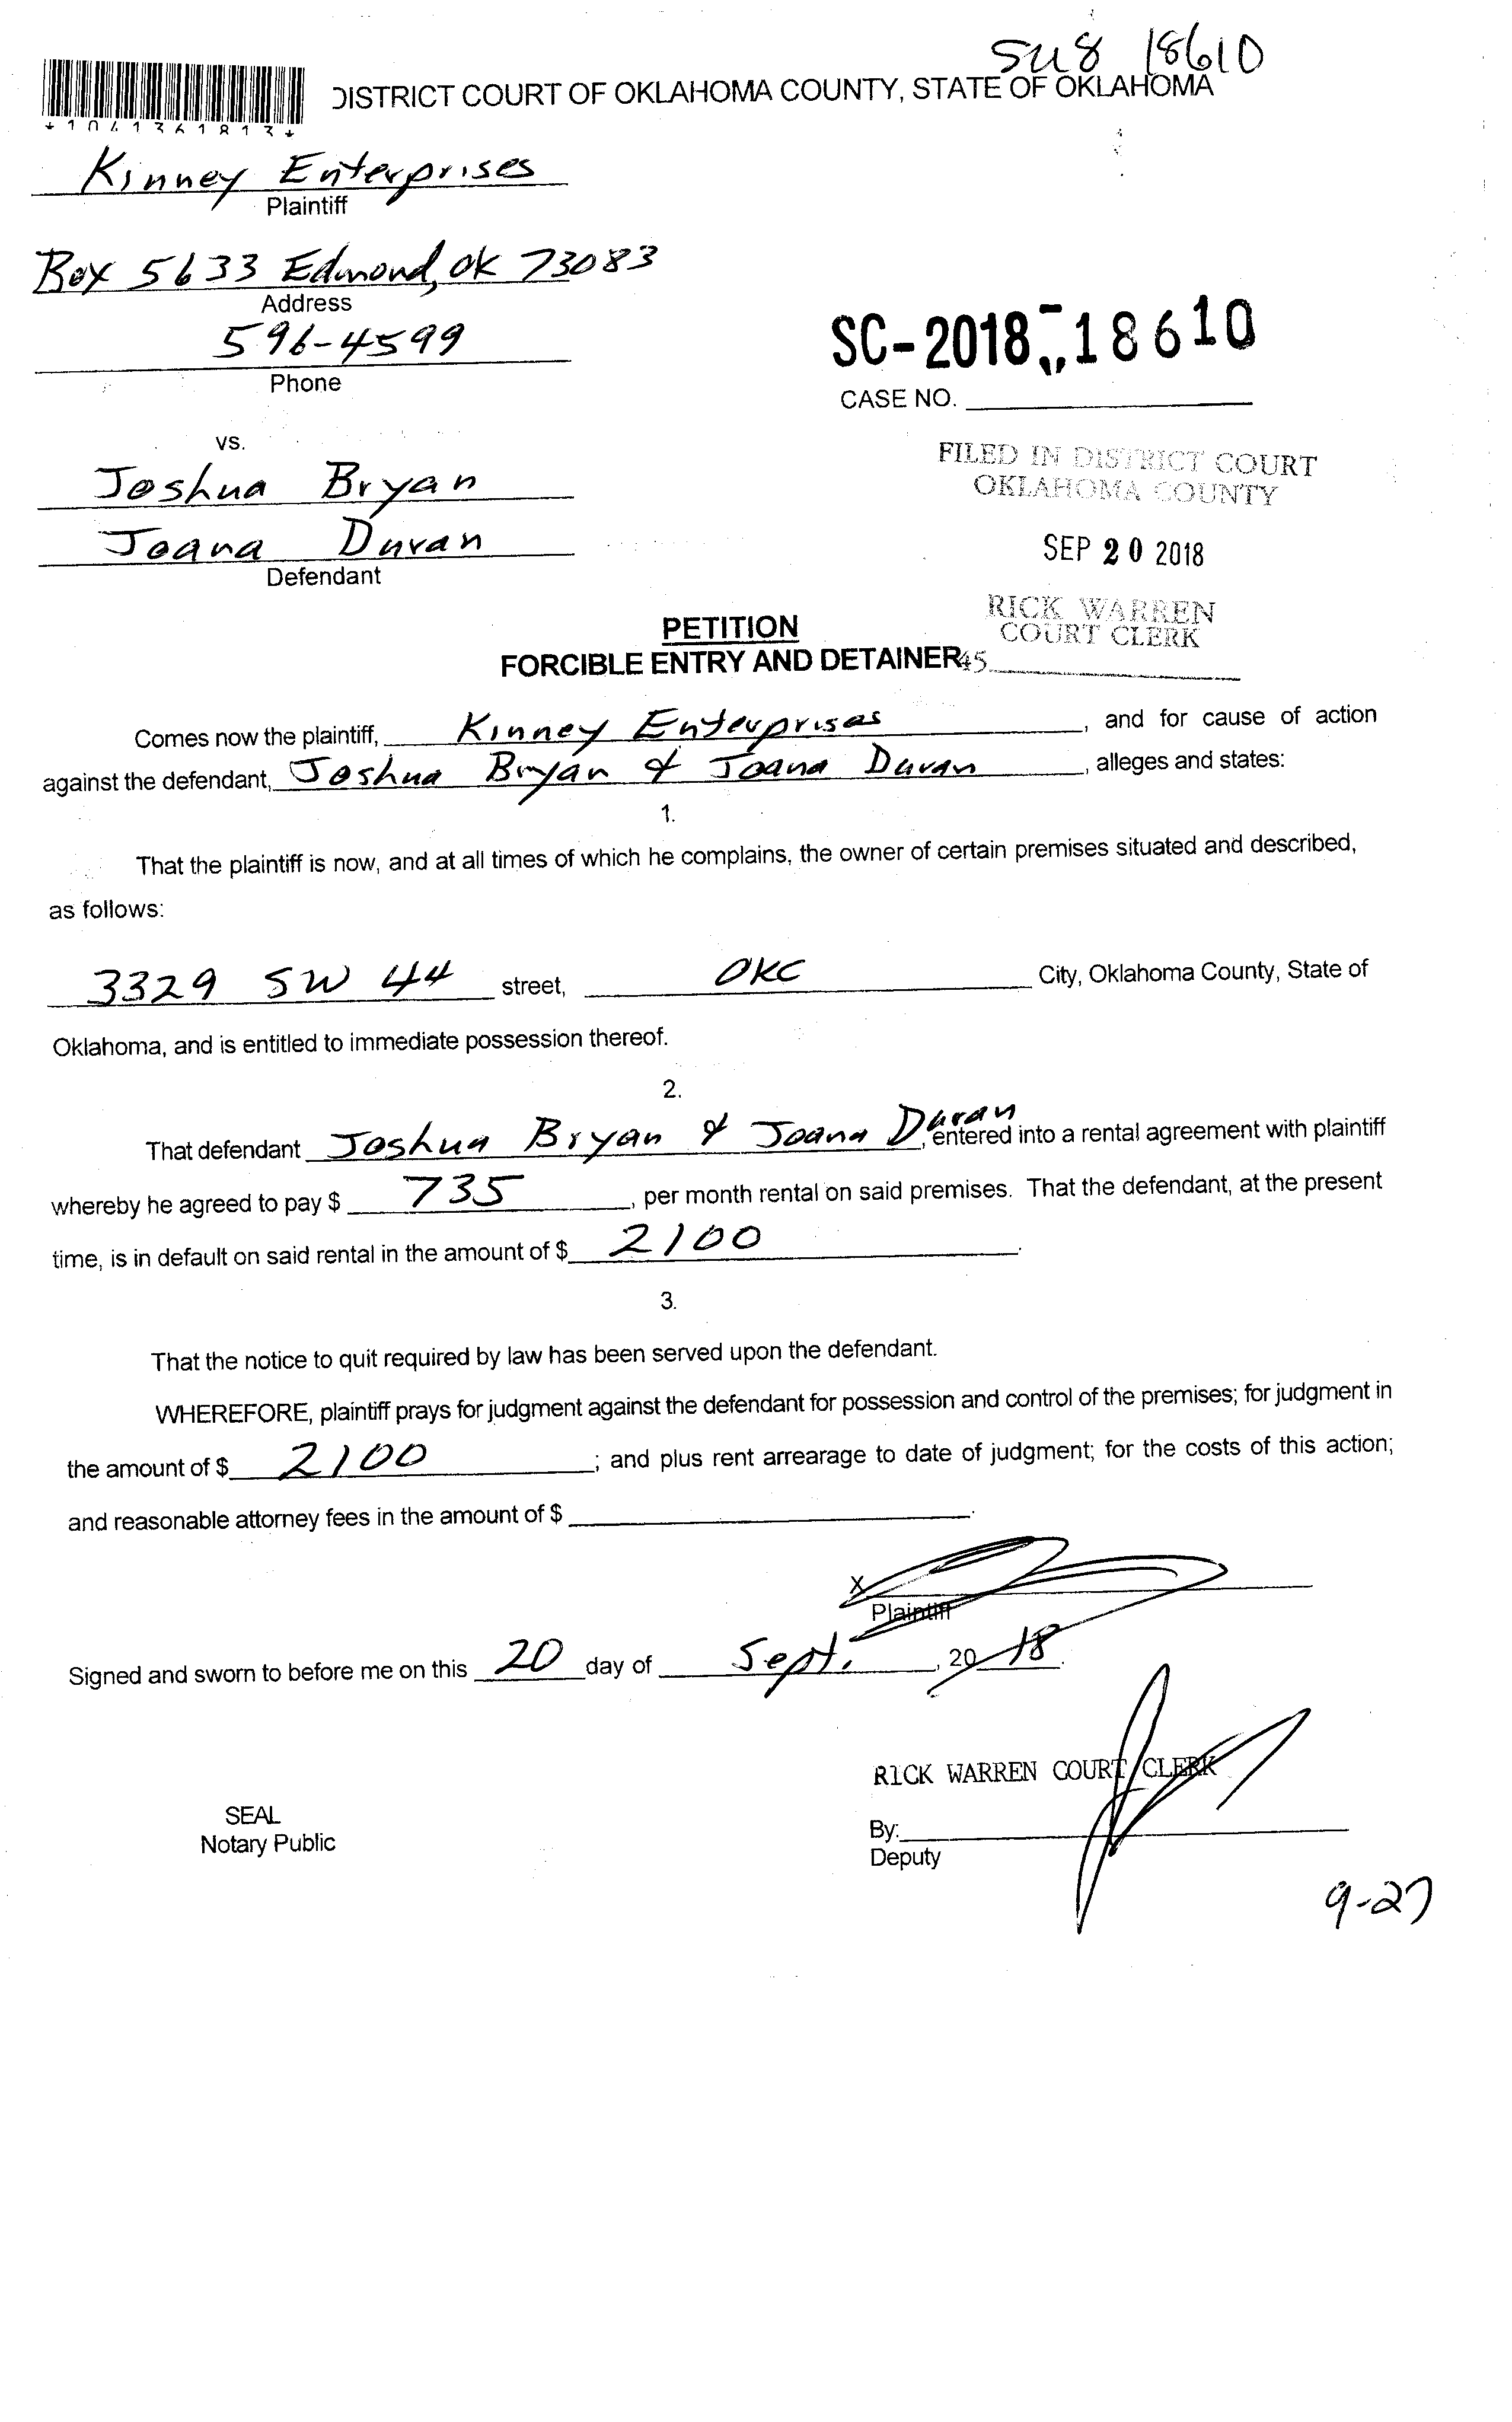 SU8 18610
DISTRICT COURT OF OKLAHOMA COUNTY, STATE OF OKLAHOMA
*1041361813*
Kinney Enterprises
Plaintiff
Box 5633 Edmond, OK 73083
Address
596-4599
Phone
SC-2018-18610
CASE NO.
vs.
Joshua Bryan
Joana Duran
Defendant
FILED IN DISTRICT COURT
OKLAHOMA COUNTY
SEP 20 2018
RICK WARREN
COURT CLERK
45
PETITION
FORCIBLE ENTRY AND DETAINER
Comes now the plaintiff, Kinney Enterprises, and for cause of action
against the defendant, Joshua Bryan & Joana Duran, alleges and states:
1.
That the plaintiff is now, and at all times of which he complains, the owner of certain premises situated and described,
as follows:
3329 SW 44 street, OKC City, Oklahoma County, State of
Oklahoma, and is entitled to immediate possession thereof.
2.
That defendant Joshua Bryan & Joana Duran, entered into a rental agreement with plaintiff
whereby he agreed to pay $ 735, per month rental on said premises. That the defendant, at the present
time, is in default on said rental in the amount of $ 2100.
3.
That the notice to quit required by law has been served upon the defendant.
WHEREFORE, plaintiff prays for judgment against the defendant for possession and control of the premises; for judgment in
the amount of $ 2100; and plus rent arrearage to date of judgment; for the costs of this action;
and reasonable attorney fees in the amount of $ .
X
Plaintiff
Signed and sworn to before me on this 20 day of Sept., 2018.
RICK WARREN COURT CLERK
SEAL
Notary Public
By:
Deputy
9-27